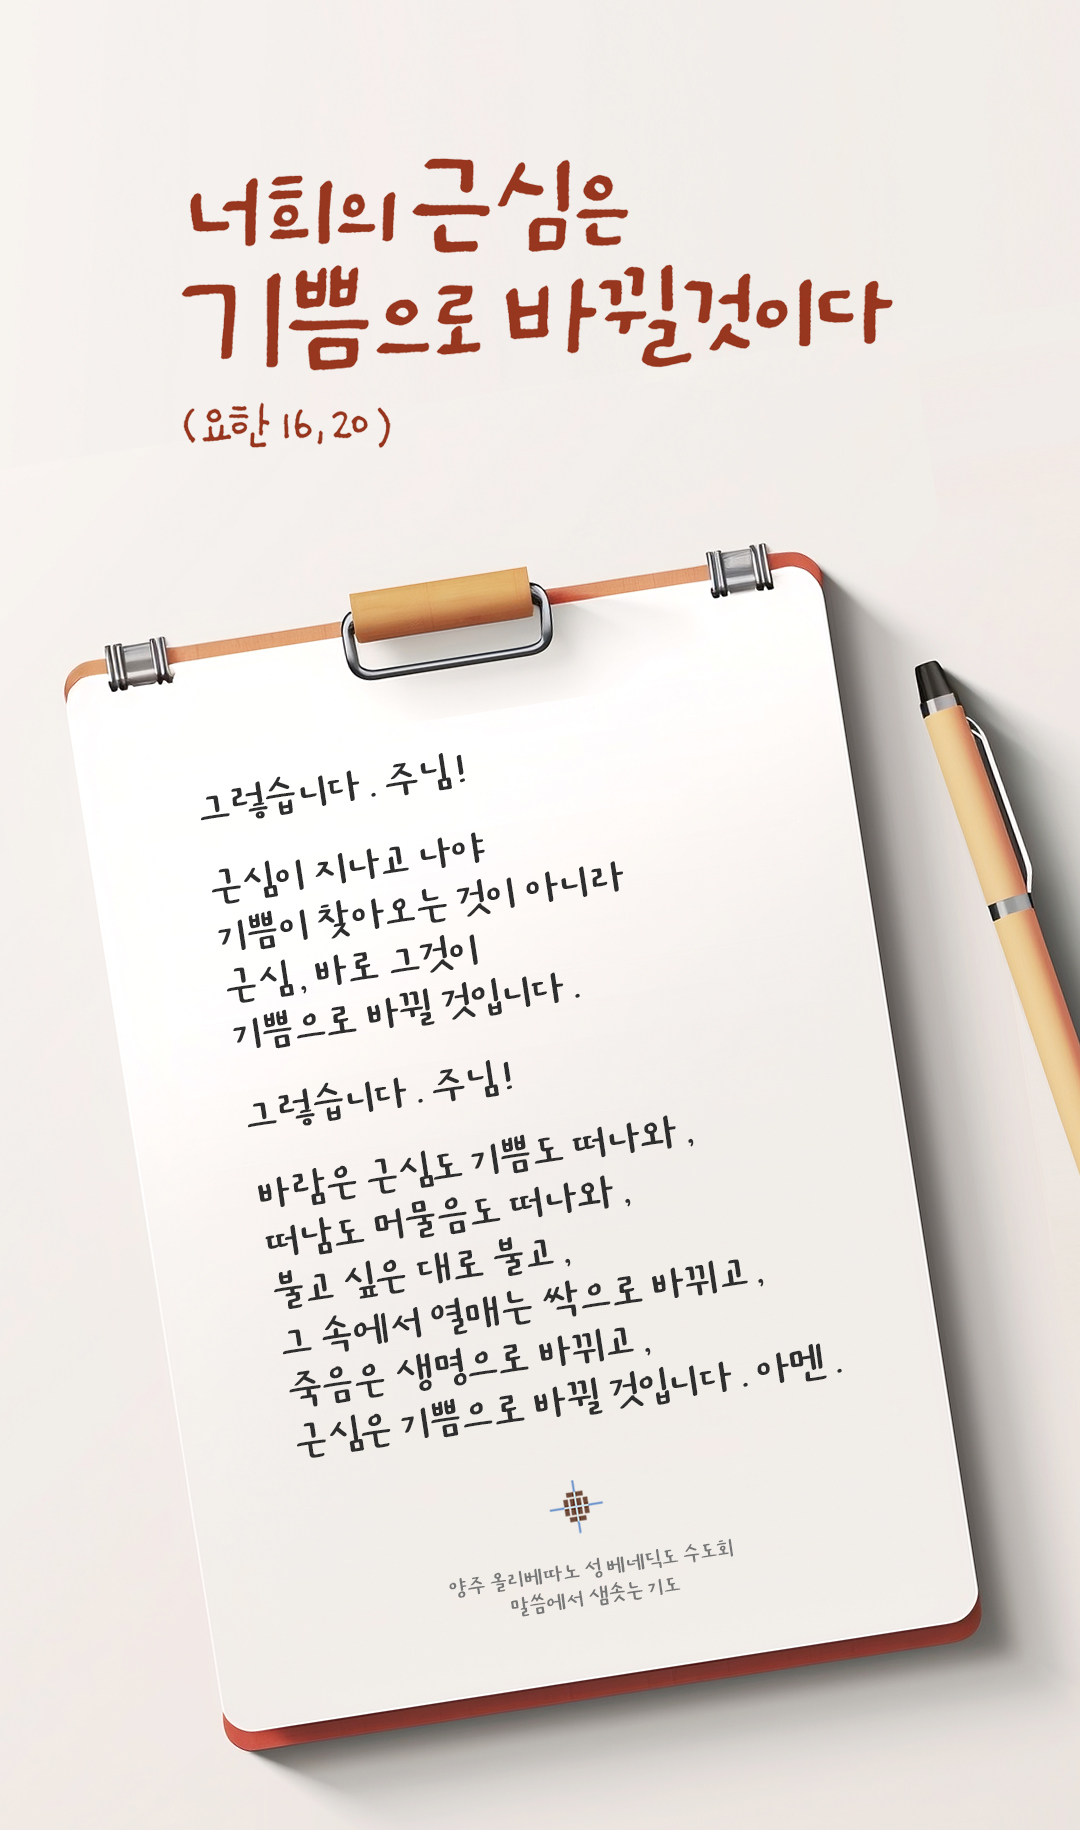 너희의 근심은
기쁨으로 바뀔것이다
(요한 16, 20)
그렇습니다. 주님!
근심이 지나고 나야
기쁨이 찾아오는 것이 아니라
근심, 바로 그것이
기쁨으로 바뀔 것입니다.
그렇습니다. 주님!
바람은 근심도 기쁨도 떠나와,
떠남도 머물음도 떠나와,
불고 싶은 대로 불고,
그 속에서 열매는 싹으로 바뀌고,
죽음은 생명으로 바뀌고,
근심은 기쁨으로 바뀔 것입니다. 아멘.
양주 올리베따노 성 베네딕도 수도회
말씀에서 샘솟는 기도